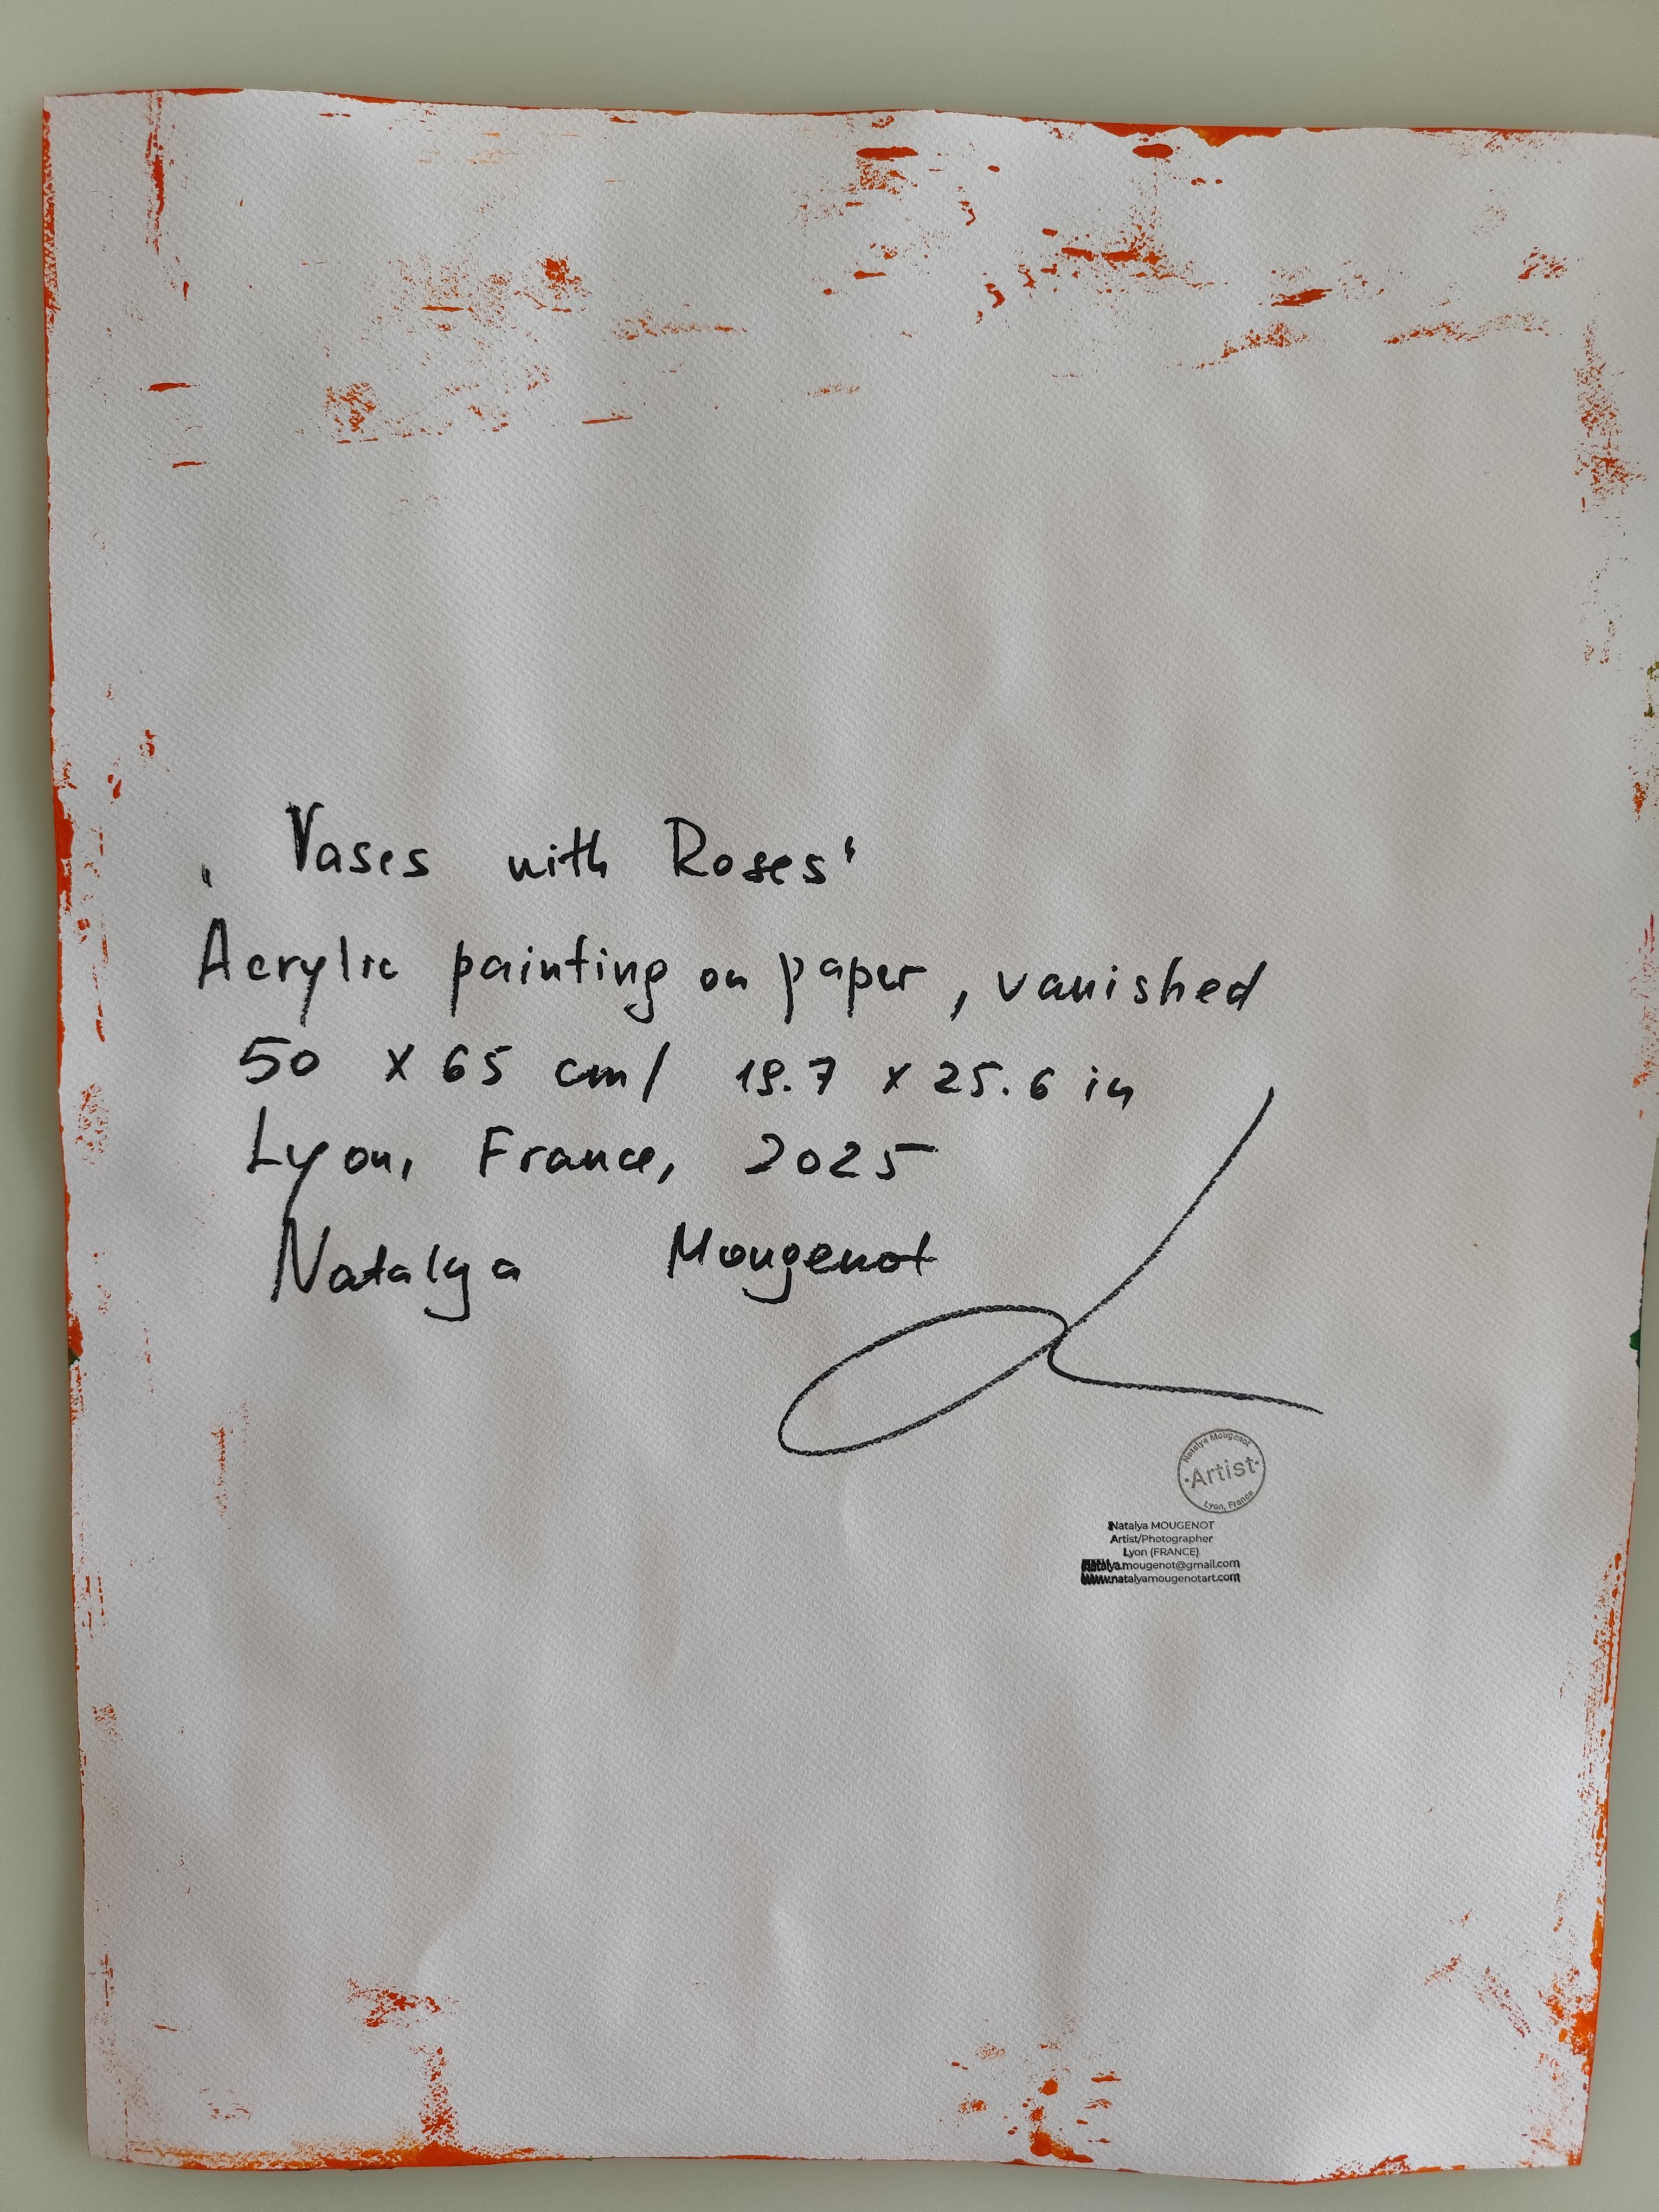 "Vases with Roses"
Acrylic painting on paper, vanished
50 x 65 cm/ 19.7 x 25.6 in
Lyon, France, 2025
Natalya Mougenot
Natalya Mougenot
·Artist·
Lyon, France
Natalya MOUGENOT
Artist/Photographer
Lyon (FRANCE)
natalya.mougenot@gmail.com
www.natalyamougenotart.com